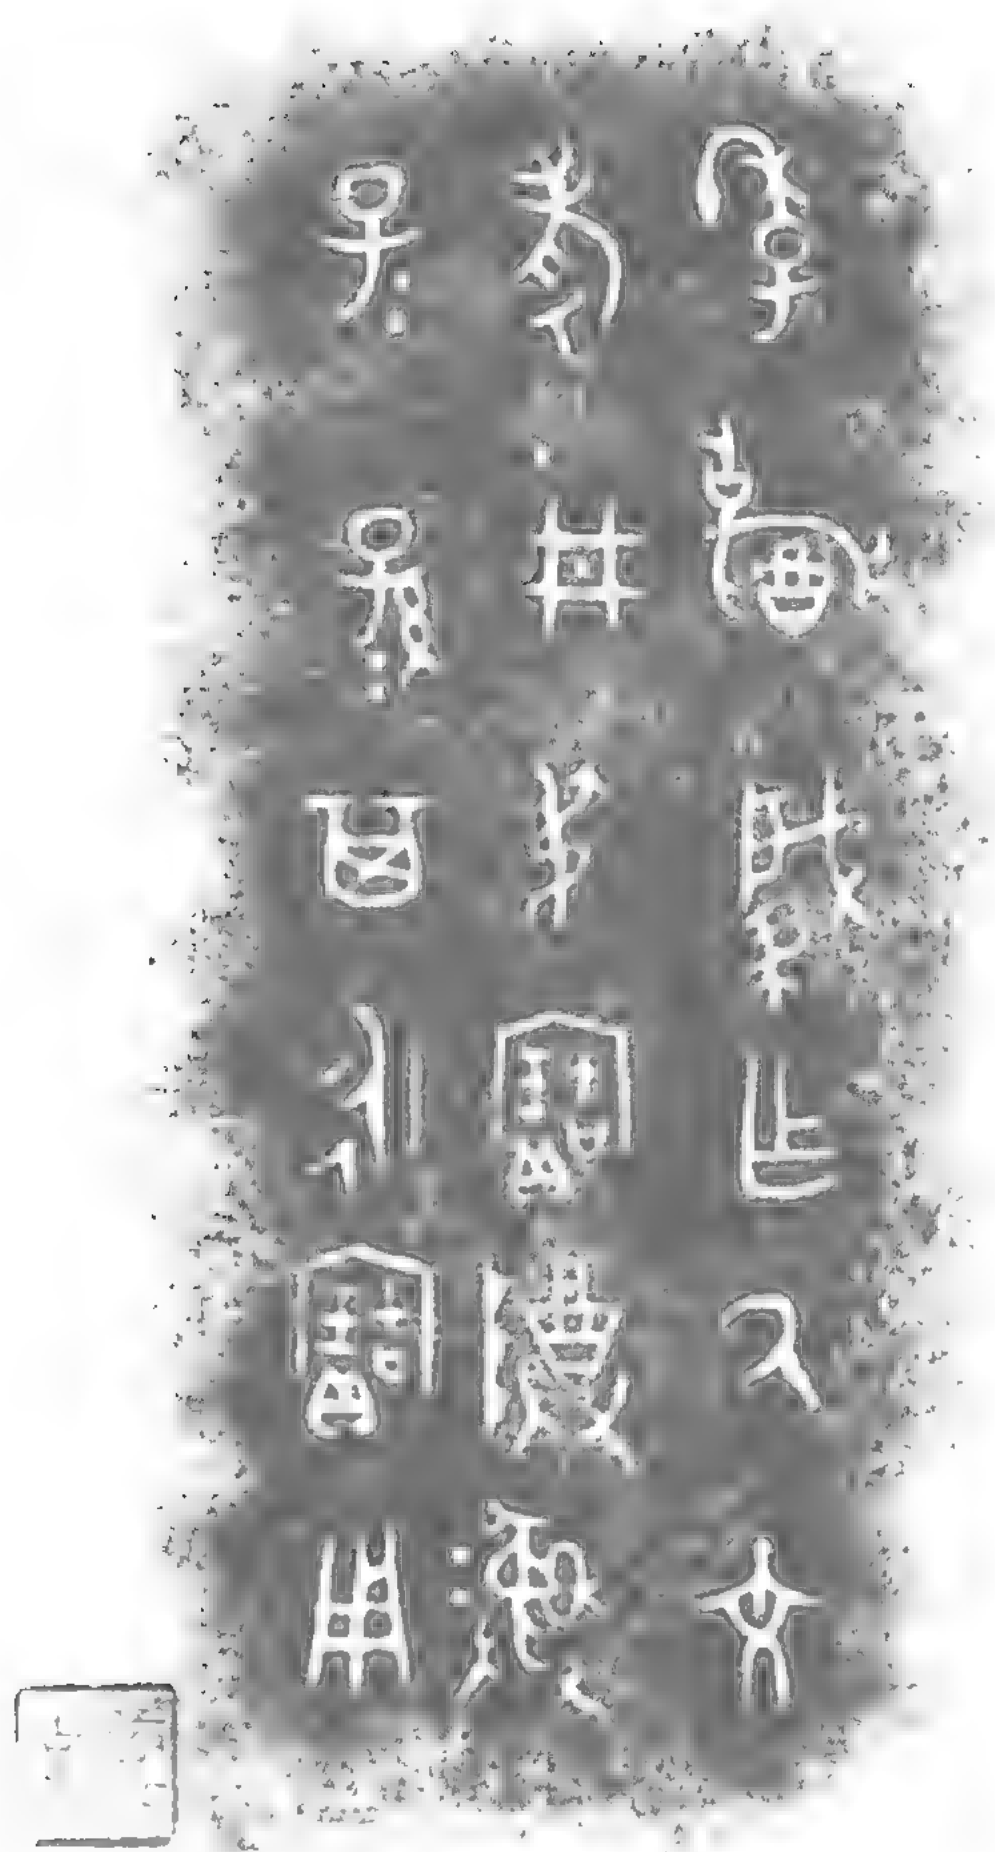 季肇乍厥文
考井叔寶尊彝
子=孫=其永寶用